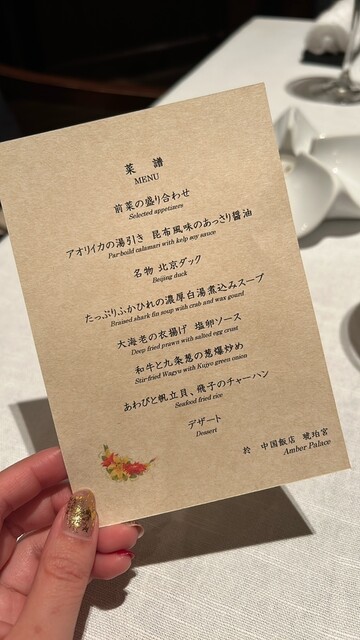 菜 譜
MENU
前菜の盛り合わせ
Selected appetizers
アオリイカの湯引き 昆布風味のあっさり醤油
Parboild calamari with kelp soy sauce
名物 北京ダック
Beijing duck
たっぷりふかひれの濃厚白湯煮込みスープ
Braised shark fin soup with crab and wax gourd
大海老の衣揚げ 塩卵ソース
Deep fried prawn with salted egg crust
和牛と九条葱の葱爆炒め
Stir-fried Wagyu with Kujyo green onion
あわびと帆立貝、飛子のチャーハン
Seafood fried rice
デザート
Dessert
於 中国飯店 琥珀宮
Amber Palace